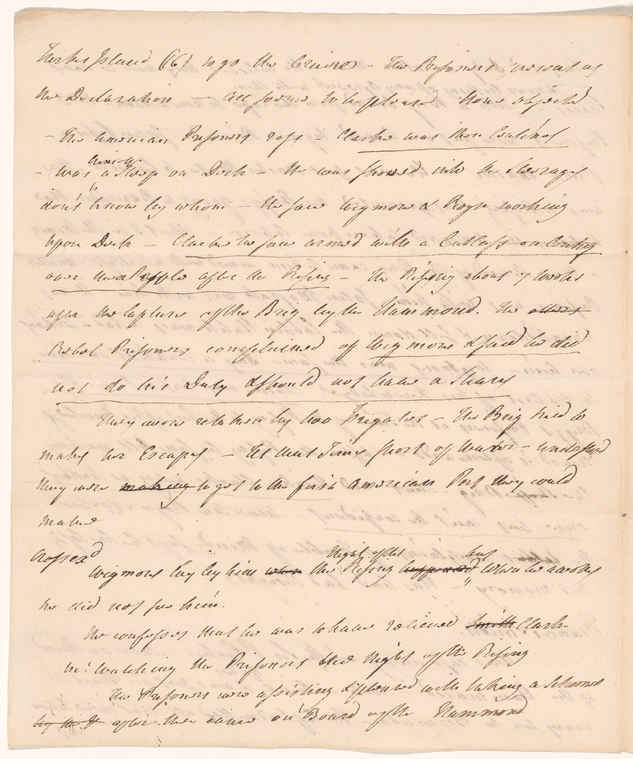 Island (6) to go the Cruise - The Prisoners
the Declaration - all seemed to be pleased None object'd
- The American Prisoners rose - Clarke was then Centinel
- Was asleep on Deck - He was shoved into the Steerage
don't know by whom - He saw Wigmore & working
upon Deck - Clarke he saw armed with a Cutlass on Centry
over the People after the Rising - The Rising about 7 Weeks
after the Capture of the Brig by the Hammond. The others
Rebel Prisoners complained of Wigmore & said he did
not do his Duty & should not have a Share
They were retaken by two Frigates - The Brig tried to
make her Escape - At that Time short of Water - understood
they were making to get to the first American Port they could
make
Cross ex'd
Night of the but
Wigmore lay by him when the Rising happened when he awoke
he did not see him.
He confesses that he was to have relieved Smith Clark
in watching the Prisoners the Night of the Rising
The Prisoners were assisting & pleased with taking a Schooner
after they came on Board of the Hammond